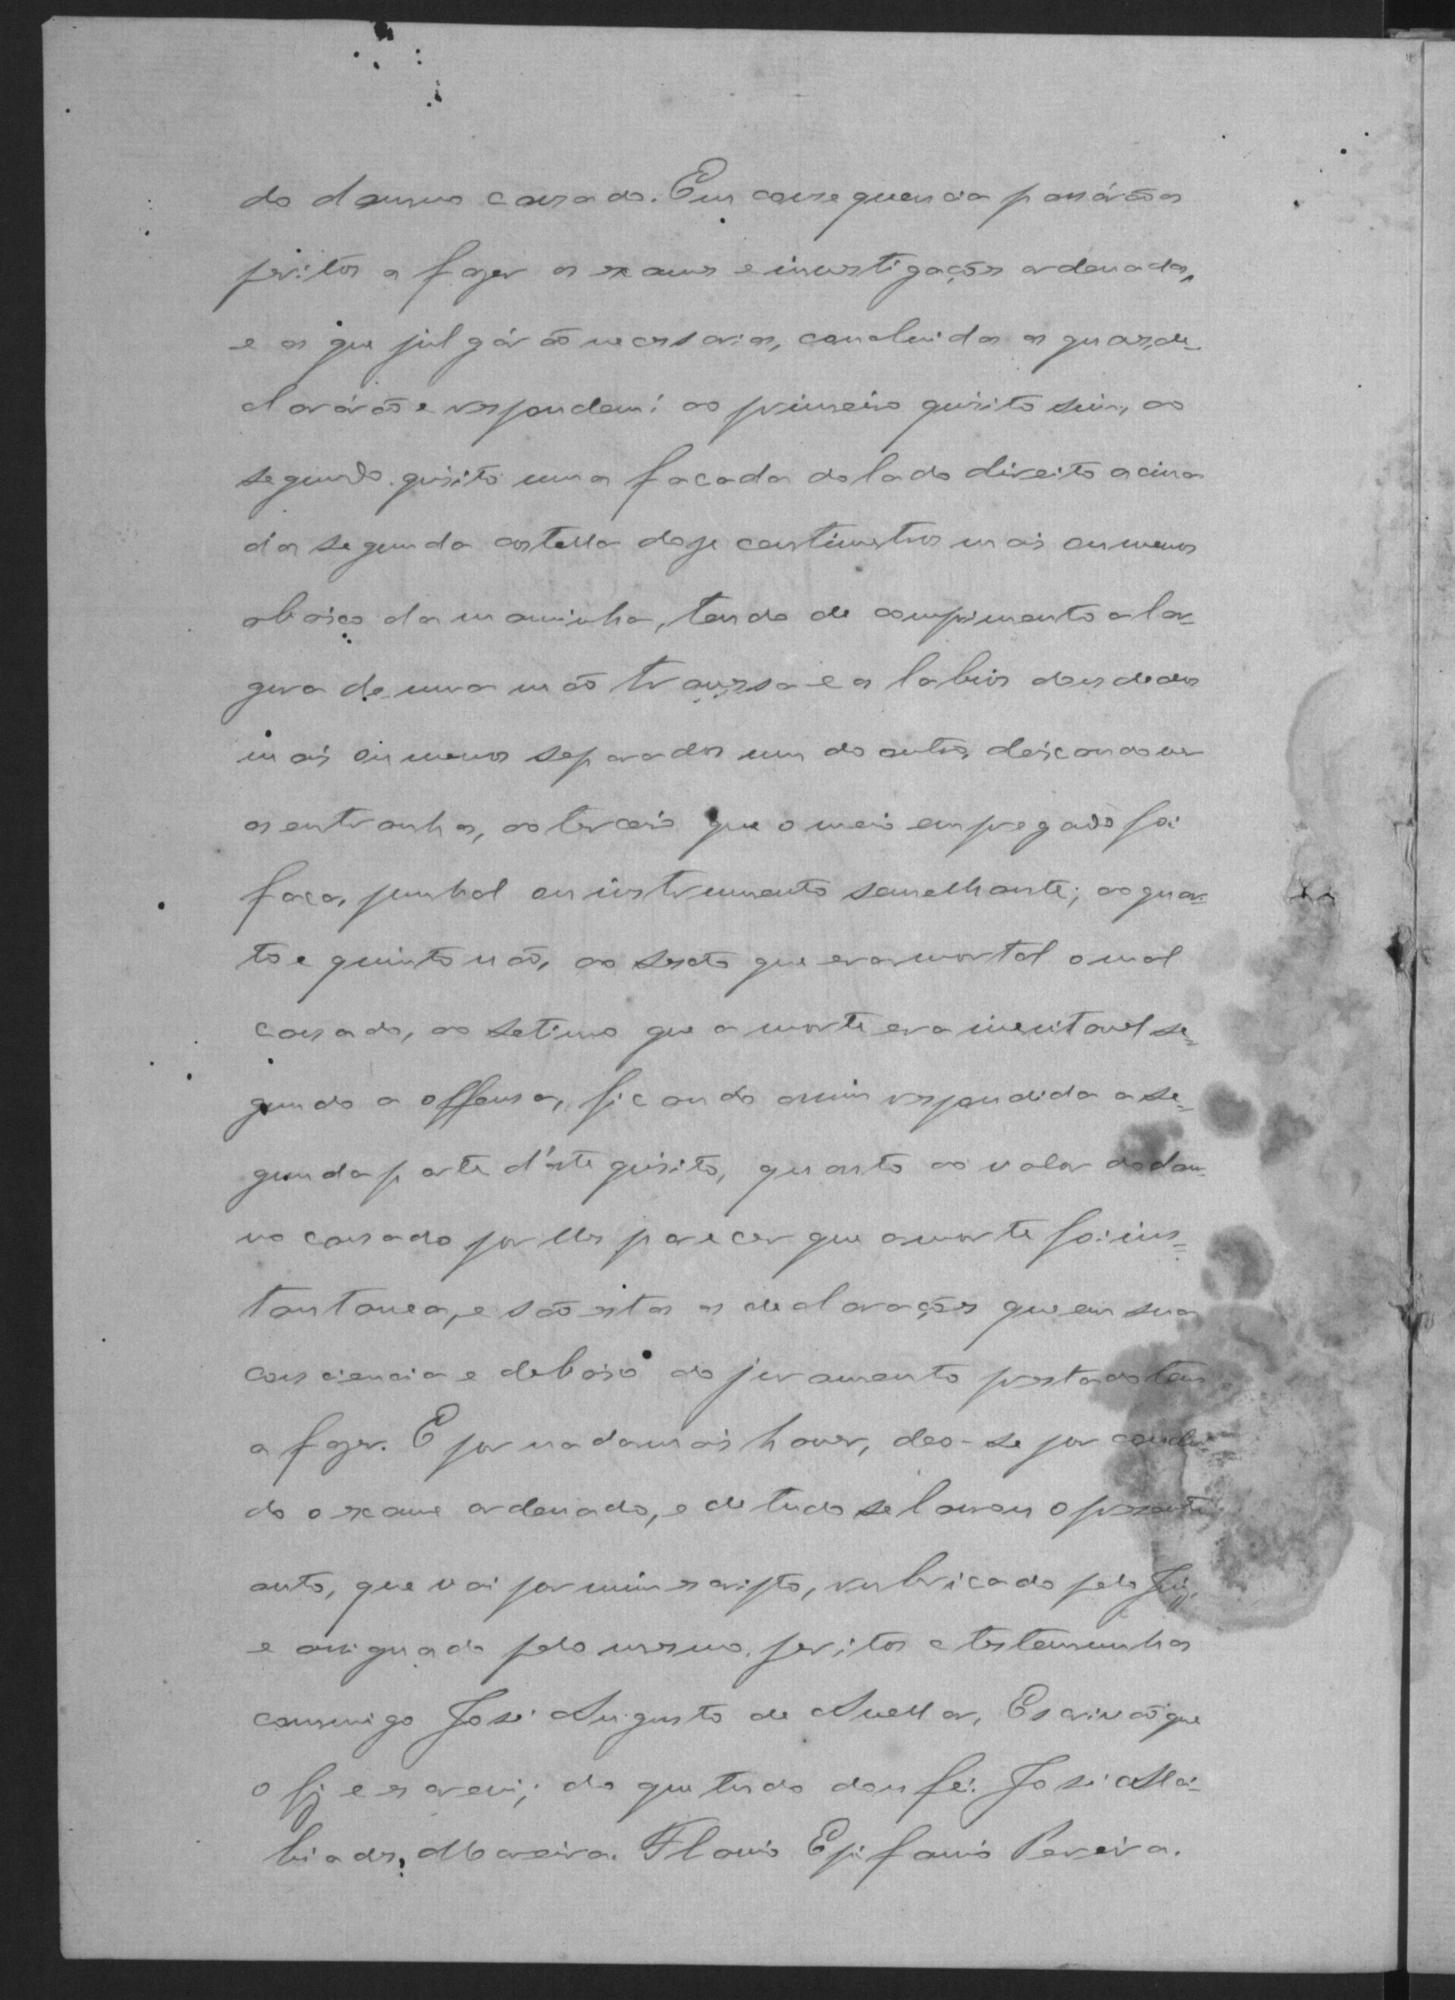 do damno causado. Em consequencia passárão os
peritos a fazer os exames e investigações ordenadas,
e as que julgárão necessarias, concluidas as quaes, de-
clarárão e respondem: ao primeiro quisito sim, ao
segundo quisito uma facada do lado direito acima
da segunda costella doze centimetros mais ou menos
abaixo da maminha, tendo de comprimento a lar-
gura de uma mão traversa e os labios dous dedos
mais ou menos separados um do outro, deixando ver
as entranhas, ao terceiro que o meio empregado foi
faca, punhal ou instrumento semelhante; ao quar-
to e quinto não, ao sexto que era mortal o mal
causado, ao setimo que a morte era inevitavel se-
gundo a offensa, ficando assim respondida a se-
gunda parte d'este quisito, quanto ao valor do dam-
no causado por elles parecer que a morte foi ins-
tantanea, e são estas as declarações que em sua
consciencia e debaixo do juramento prestado tem
a fazer. E por nada mais haver, deo-se por conclui-
do o exame ordenado, e de tudo se lavrou o presente
auto, que vai por mim escripto, rubricado pelo Juiz,
e assignado pelo mesmo, peritos e testemunhas
commigo José Augusto de Avellar, Escrivão que
o fiz e escrevi; do que tudo dou fé. José Alci-
biades Moreira. Flavio Epifanio Pereira.